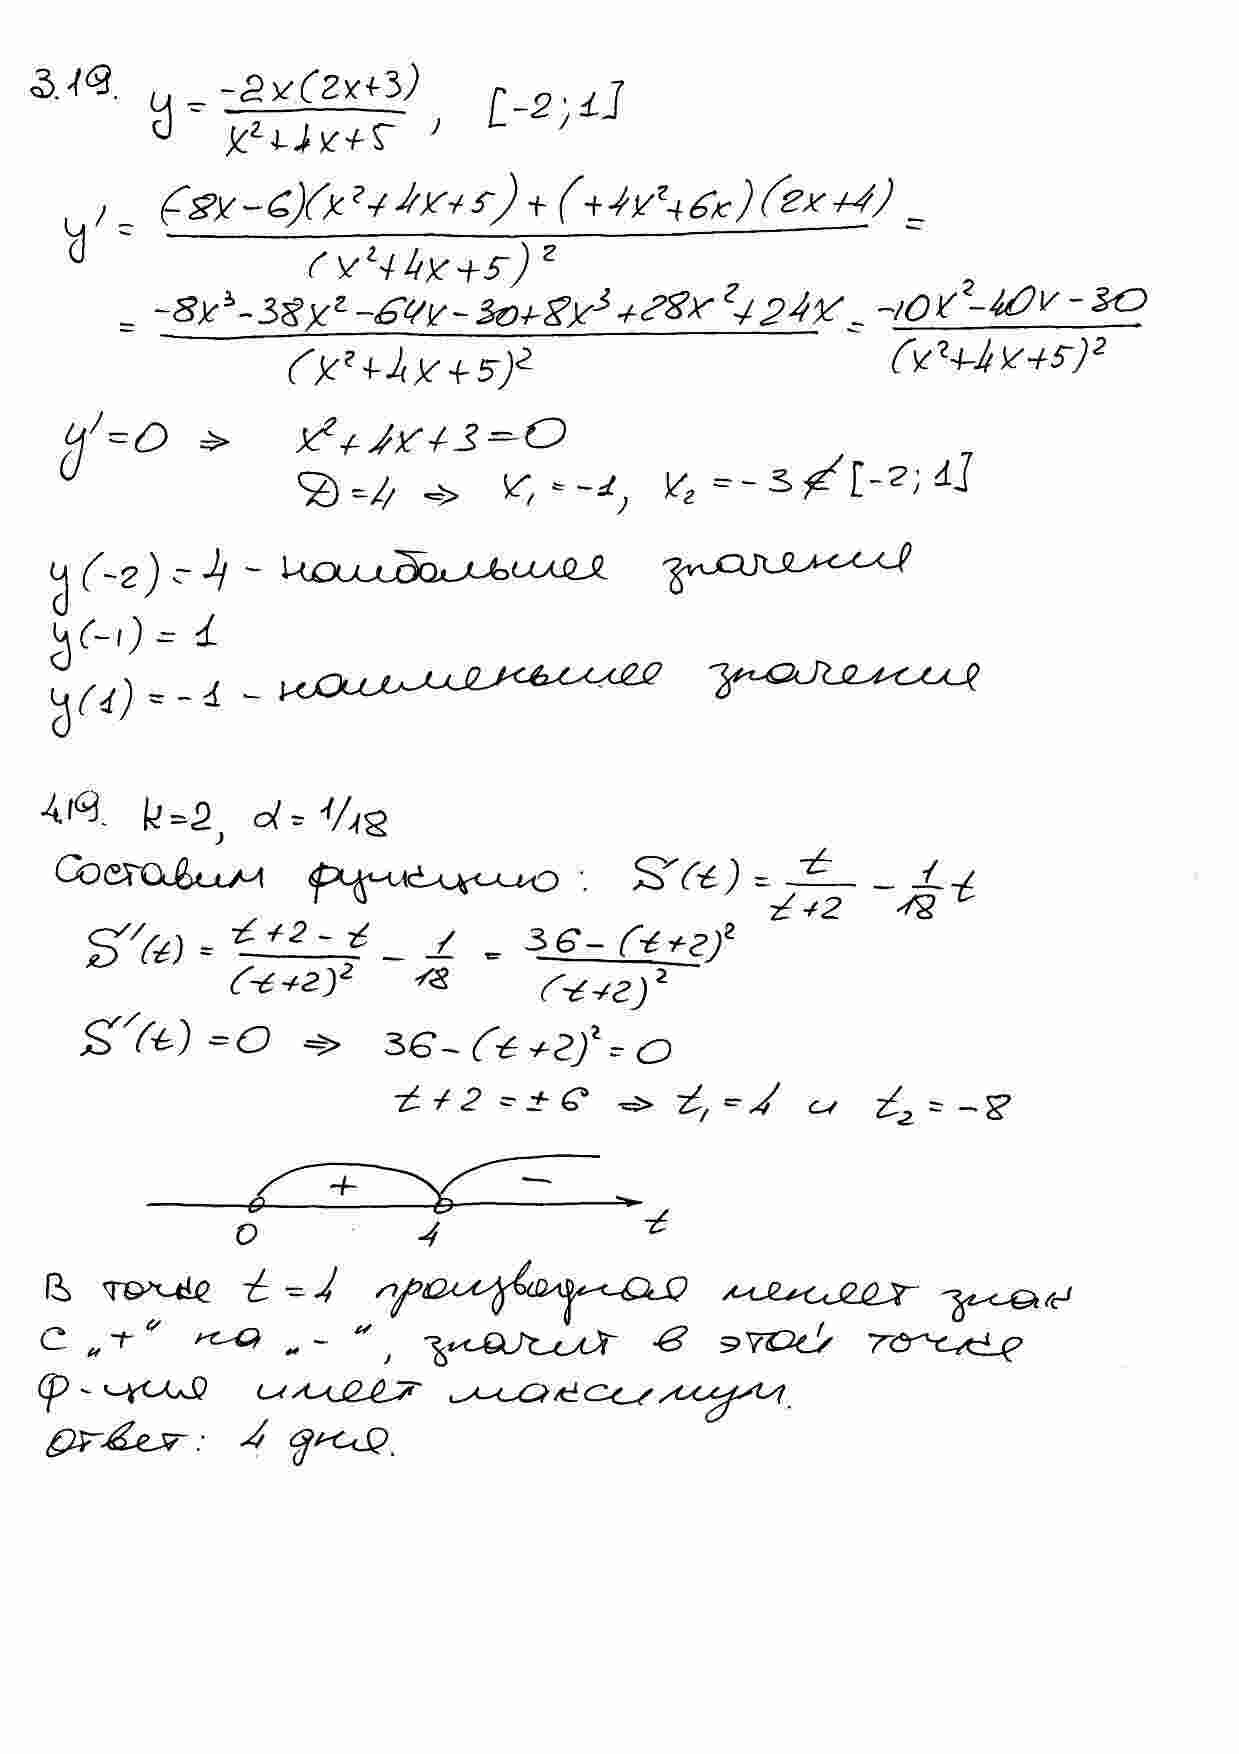 3.19. y = -2x(2x+3) / x²+4x+5 , [-2;1]
y' = (-8x-6)(x²+4x+5)+(+4x²+6x)(2x+4) / (x²+4x+5)² =
= -8x³-38x²-64x-30+8x³+28x²+24x / (x²+4x+5)² = -10x²-40x-30 / (x²+4x+5)²
y'=0 ⇒ x²+4x+3=0
D=4 ⇒ x₁=-1, x₂=-3 ∉ [-2;1]
y(-2)=4 - наибольшее значение
y(-1)=1
y(1)=-1 - наименьшее значение
4.19. k=2, α=1/18
Составим функцию: S(t) = t/t+2 - 1/18 t
S'(t) = t+2-t / (t+2)² - 1/18 = 36-(t+2)² / (t+2)²
S'(t)=0 ⇒ 36-(t+2)²=0
t+2=±6 ⇒ t₁=4 и t₂=-8
+ -
0 4 t
В точке t=4 производная меняет знак
с „+" на „-", значит в этой точке
ф-ция имеет максимум.
Ответ: 4 дня.